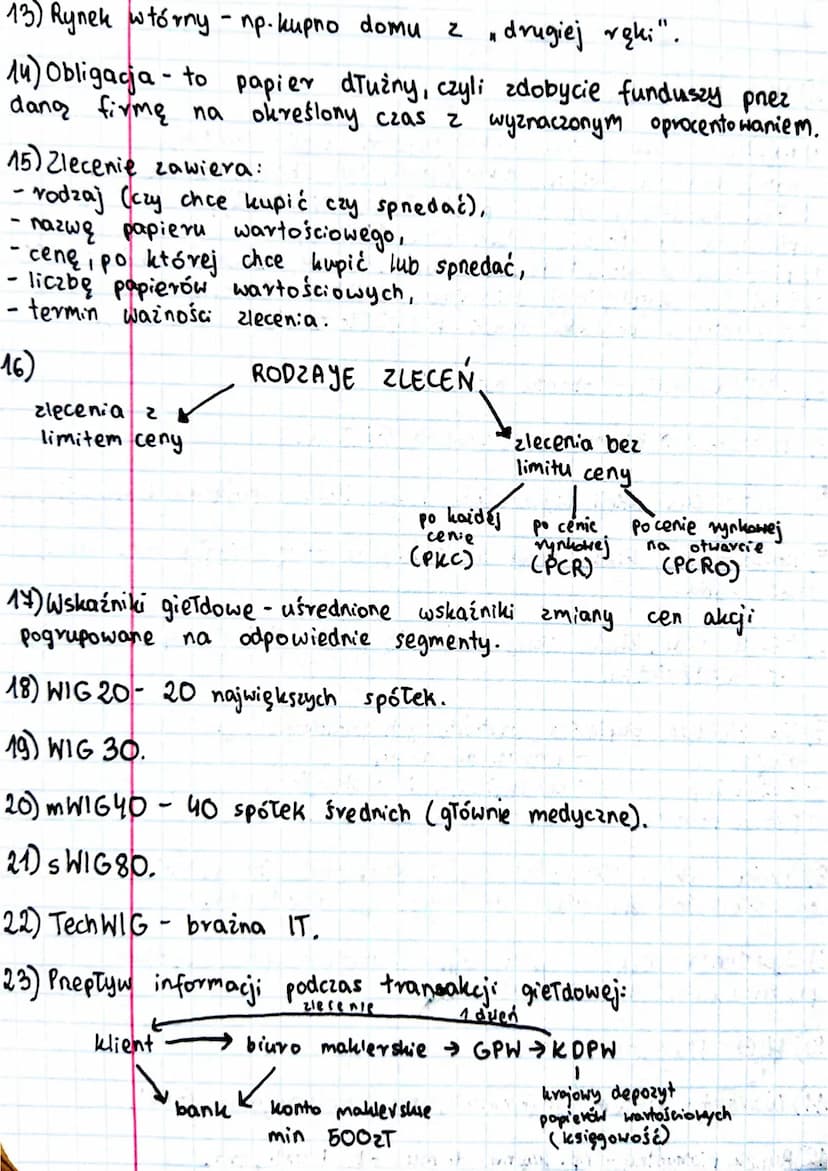 13) Rynek wtórny - np. kupno domu z „drugiej ręki".
14) Obligacja - to papier dłużny, czyli zdobycie funduszy przez
daną firmę na określony czas z wyznaczonym oprocentowaniem.
15) Zlecenie zawiera:
- rodzaj (czy chce kupić czy sprzedać),
- nazwę papieru wartościowego,
- cenę, po której chce kupić lub sprzedać,
- liczbę papierów wartościowych,
- termin ważności zlecenia.
16)
RODZAJE ZLECEŃ
zlecenia z
limitem ceny
zlecenia bez
limitu ceny
po każdej
cenie
(PKC)
po cenie
rynkowej
(PCR)
po cenie rynkowej
na otwarcie
(PCRO)
17) Wskaźniki giełdowe - uśrednione wskaźniki zmiany cen akcji
pogrupowane na odpowiednie segmenty.
18) WIG 20 - 20 największych spółek.
19) WIG 30.
20) mWIG40 - 40 spółek średnich (głównie medyczne).
21) sWIG80.
22) TechWIG - braźna IT.
23) Przepływ informacji podczas transakcji giełdowej:
zlecenie
1 dzień
klient → biuro maklerskie → GPW → KDPW
bank
konto maklerskie
min 500zł
krajowy depozyt
papierów wartościowych
(księgowość)